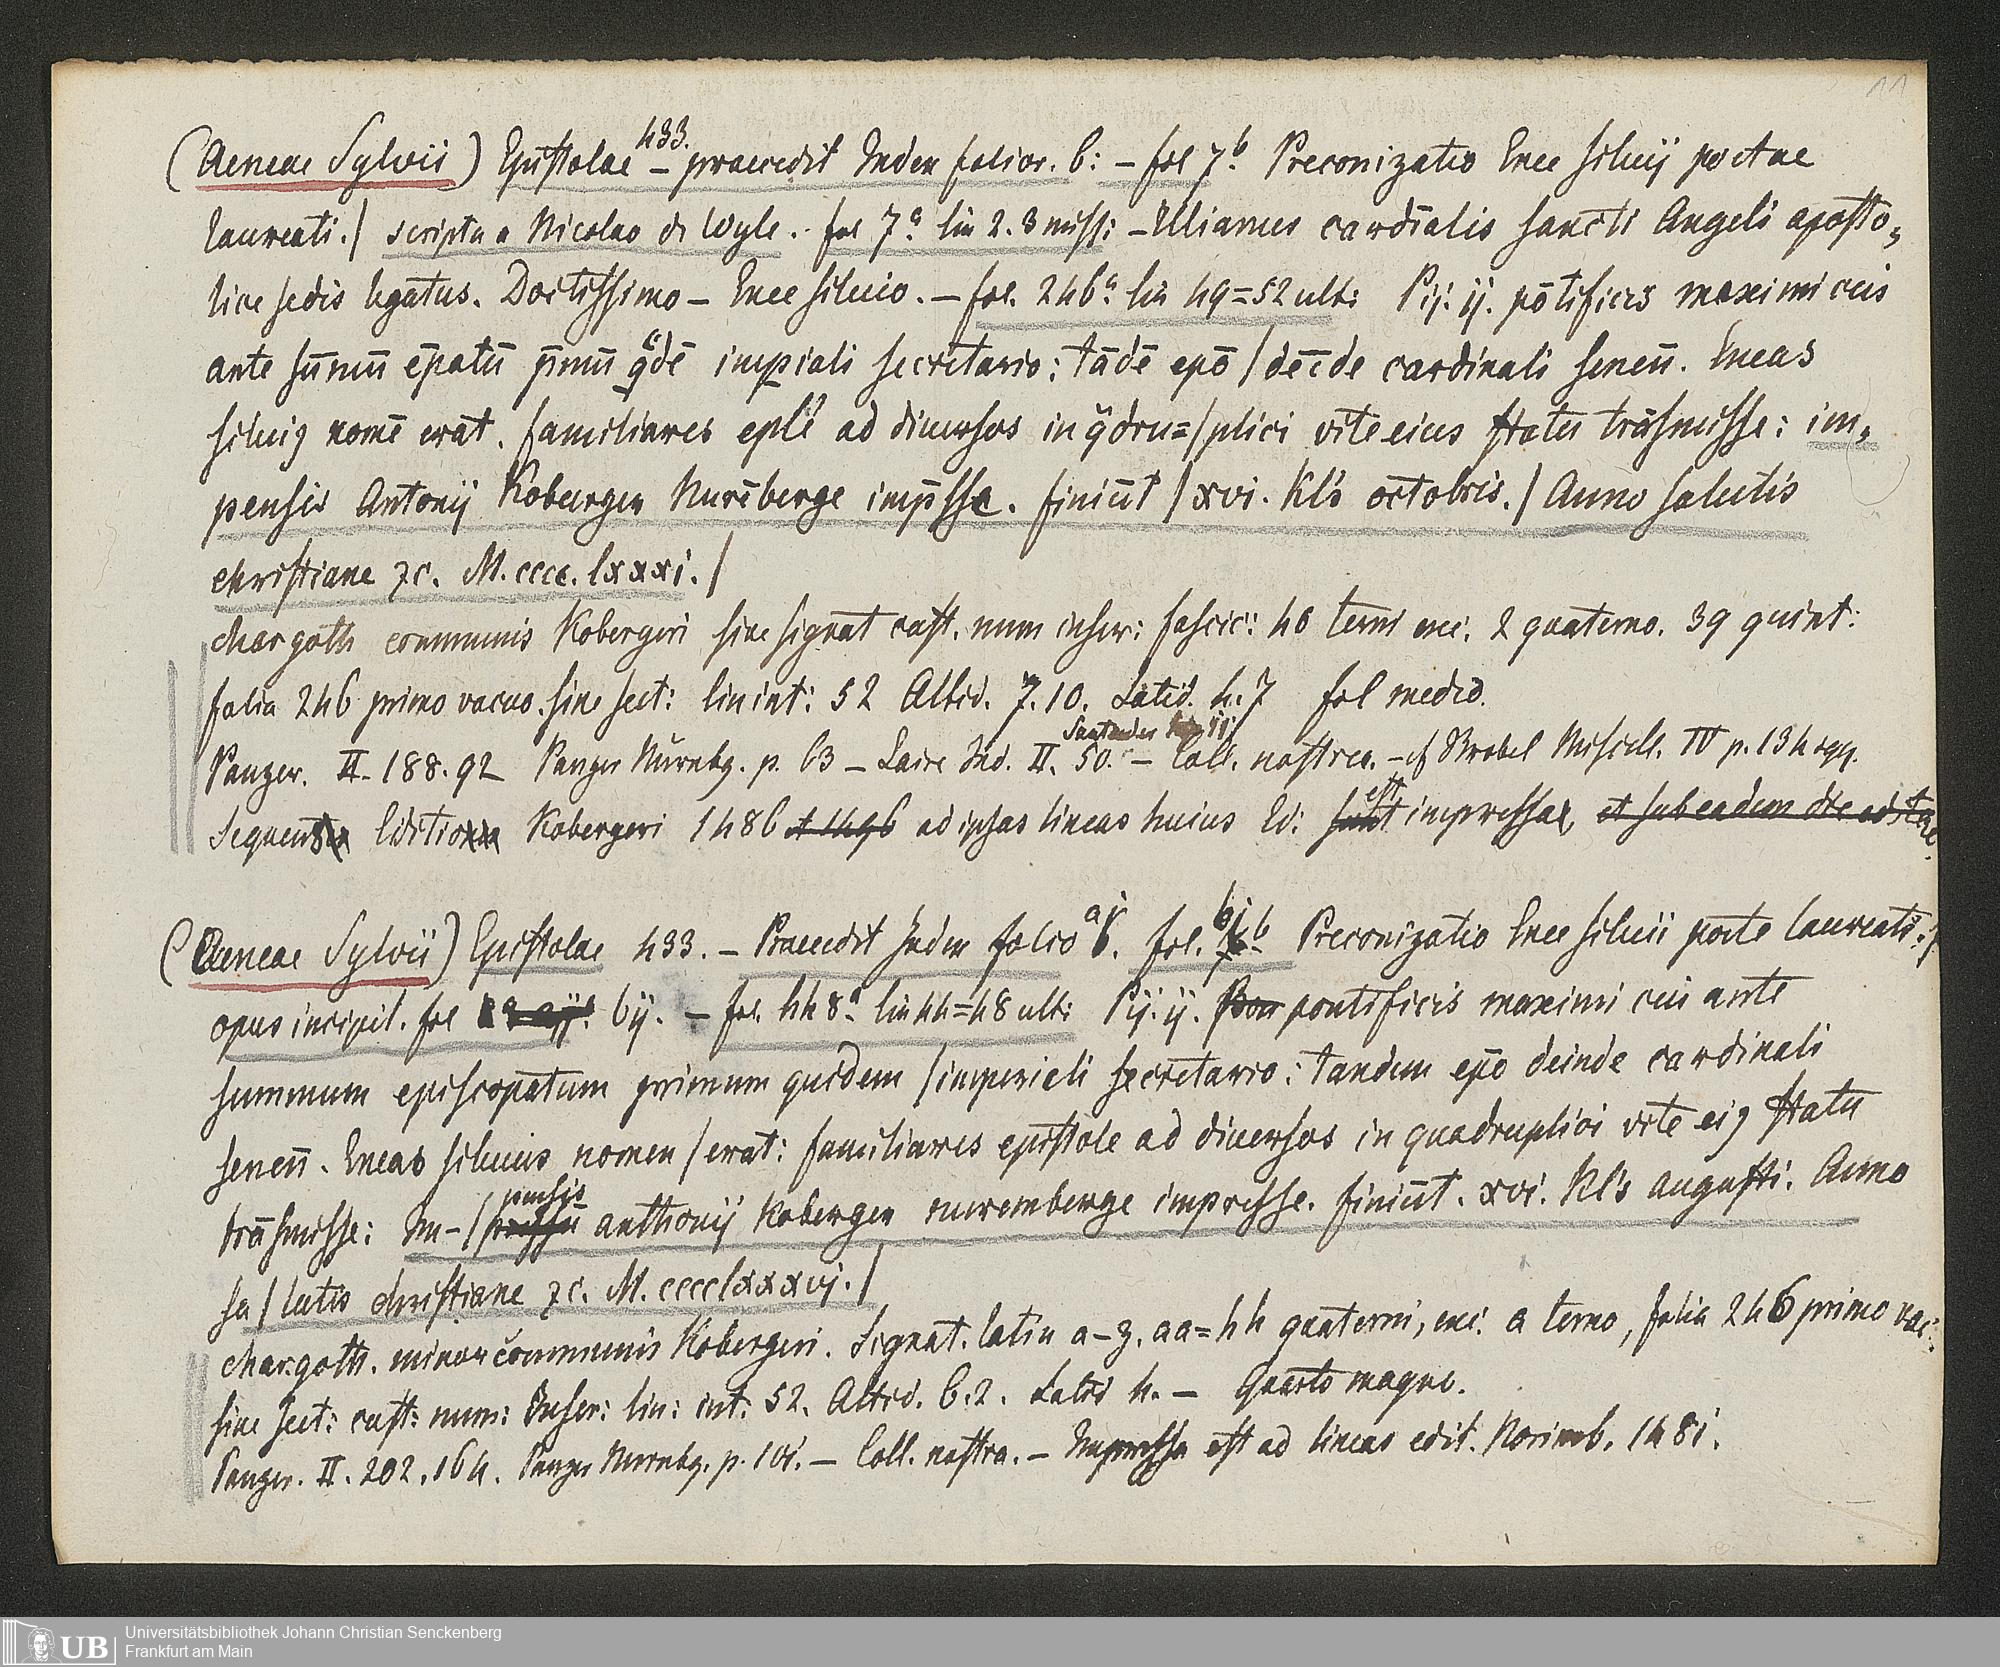 11
(Aeneae Sylvii) Epistolae 433. – praecedit Index folior. 6: – fol 7b. Preconizatio Enee siluij poetae
laureati./ scripta a Nicolao de Wyle. fol 7a lin 2. 3 miss: – Ulianus cardīalis sancti Angeli aposto„
lice sedis legatus. Doctissimo – Enee siluio. – fol. 246a lin 49=52 ult: Pij. ij. pōtificis maximi cuis
ante sūmū ēpatū pīmū qdē impiali secretario: tādē epō / deīde cardinali senēn. Eneas
siluiꝯ nomē erat. familiares eplē ad diuersos in qdru=/plici vite eius statu trāsmisse: im„
pensis Antonij Koburger Nurēberge impsse. finiūt / xvi. Kl's octobris. / Anno salutis
christiane ⁊c. M. cccc. lxxxi. /
char goth communis Kobergeri sine signat cust. num inscr: fascic: 40 terni exc. 2 quaterno. 39 quint:
folia 246 primo vacuo. sine sect: lin int: 52 Altid. 7. 10. Latid. 4. 7 fol medio.
Santander II
Panzer. II. 188. 92 Panzer Nürnbg. p. 63 – Laire Ind. II. 50. – Coll. nostra. – cf Strobel Miscell. IV p. 134 sqq.
Sequens Editio Kobergeri 1486 et 1496 ad ipsas lineas huius Ed: sunt est impressa, et sub eadem die
(Aeneae Sylvii) Epistolae 433. – Praecedit Index folio aj. fol. bj b Preconizatio Enee siluii poete laureati./
opus incipit. fol bij. – fol. hh 8a lin 44=48 ult: Pij. ij. pontificis maximi cui ante
summum episcopatum primum quidem / imperiali secretario: tandem epō deinde cardinali
senēn. Eneas siluius nomen / erat: familiares epistole ad diuersos in quadruplici vite eiꝯ statu
trāsmisse: Im-/pensis anthonij Koberger nuremberge impresse. finiūt. xvi. Kl's augusti. Anno
sa / lutis christiane ⁊c. M. cccclxxxvj. /
char. goth. minor communis Kobergeri. Signat. latin a–z. aa=hh quaterni, exc. a terno, folia 246 primo vac:
sine sect: cust: num: Inscr: lin: int: 52. Altid. 6. 2. Latid 4. – Quarto magno.
Panzer. II. 202. 164. Panzer Nurnbg. p. 101. – Coll. nostra. – Impressa est ad lineas edit. Norimb. 1481.
UB
Universitätsbibliothek Johann Christian Senckenberg
Frankfurt am Main